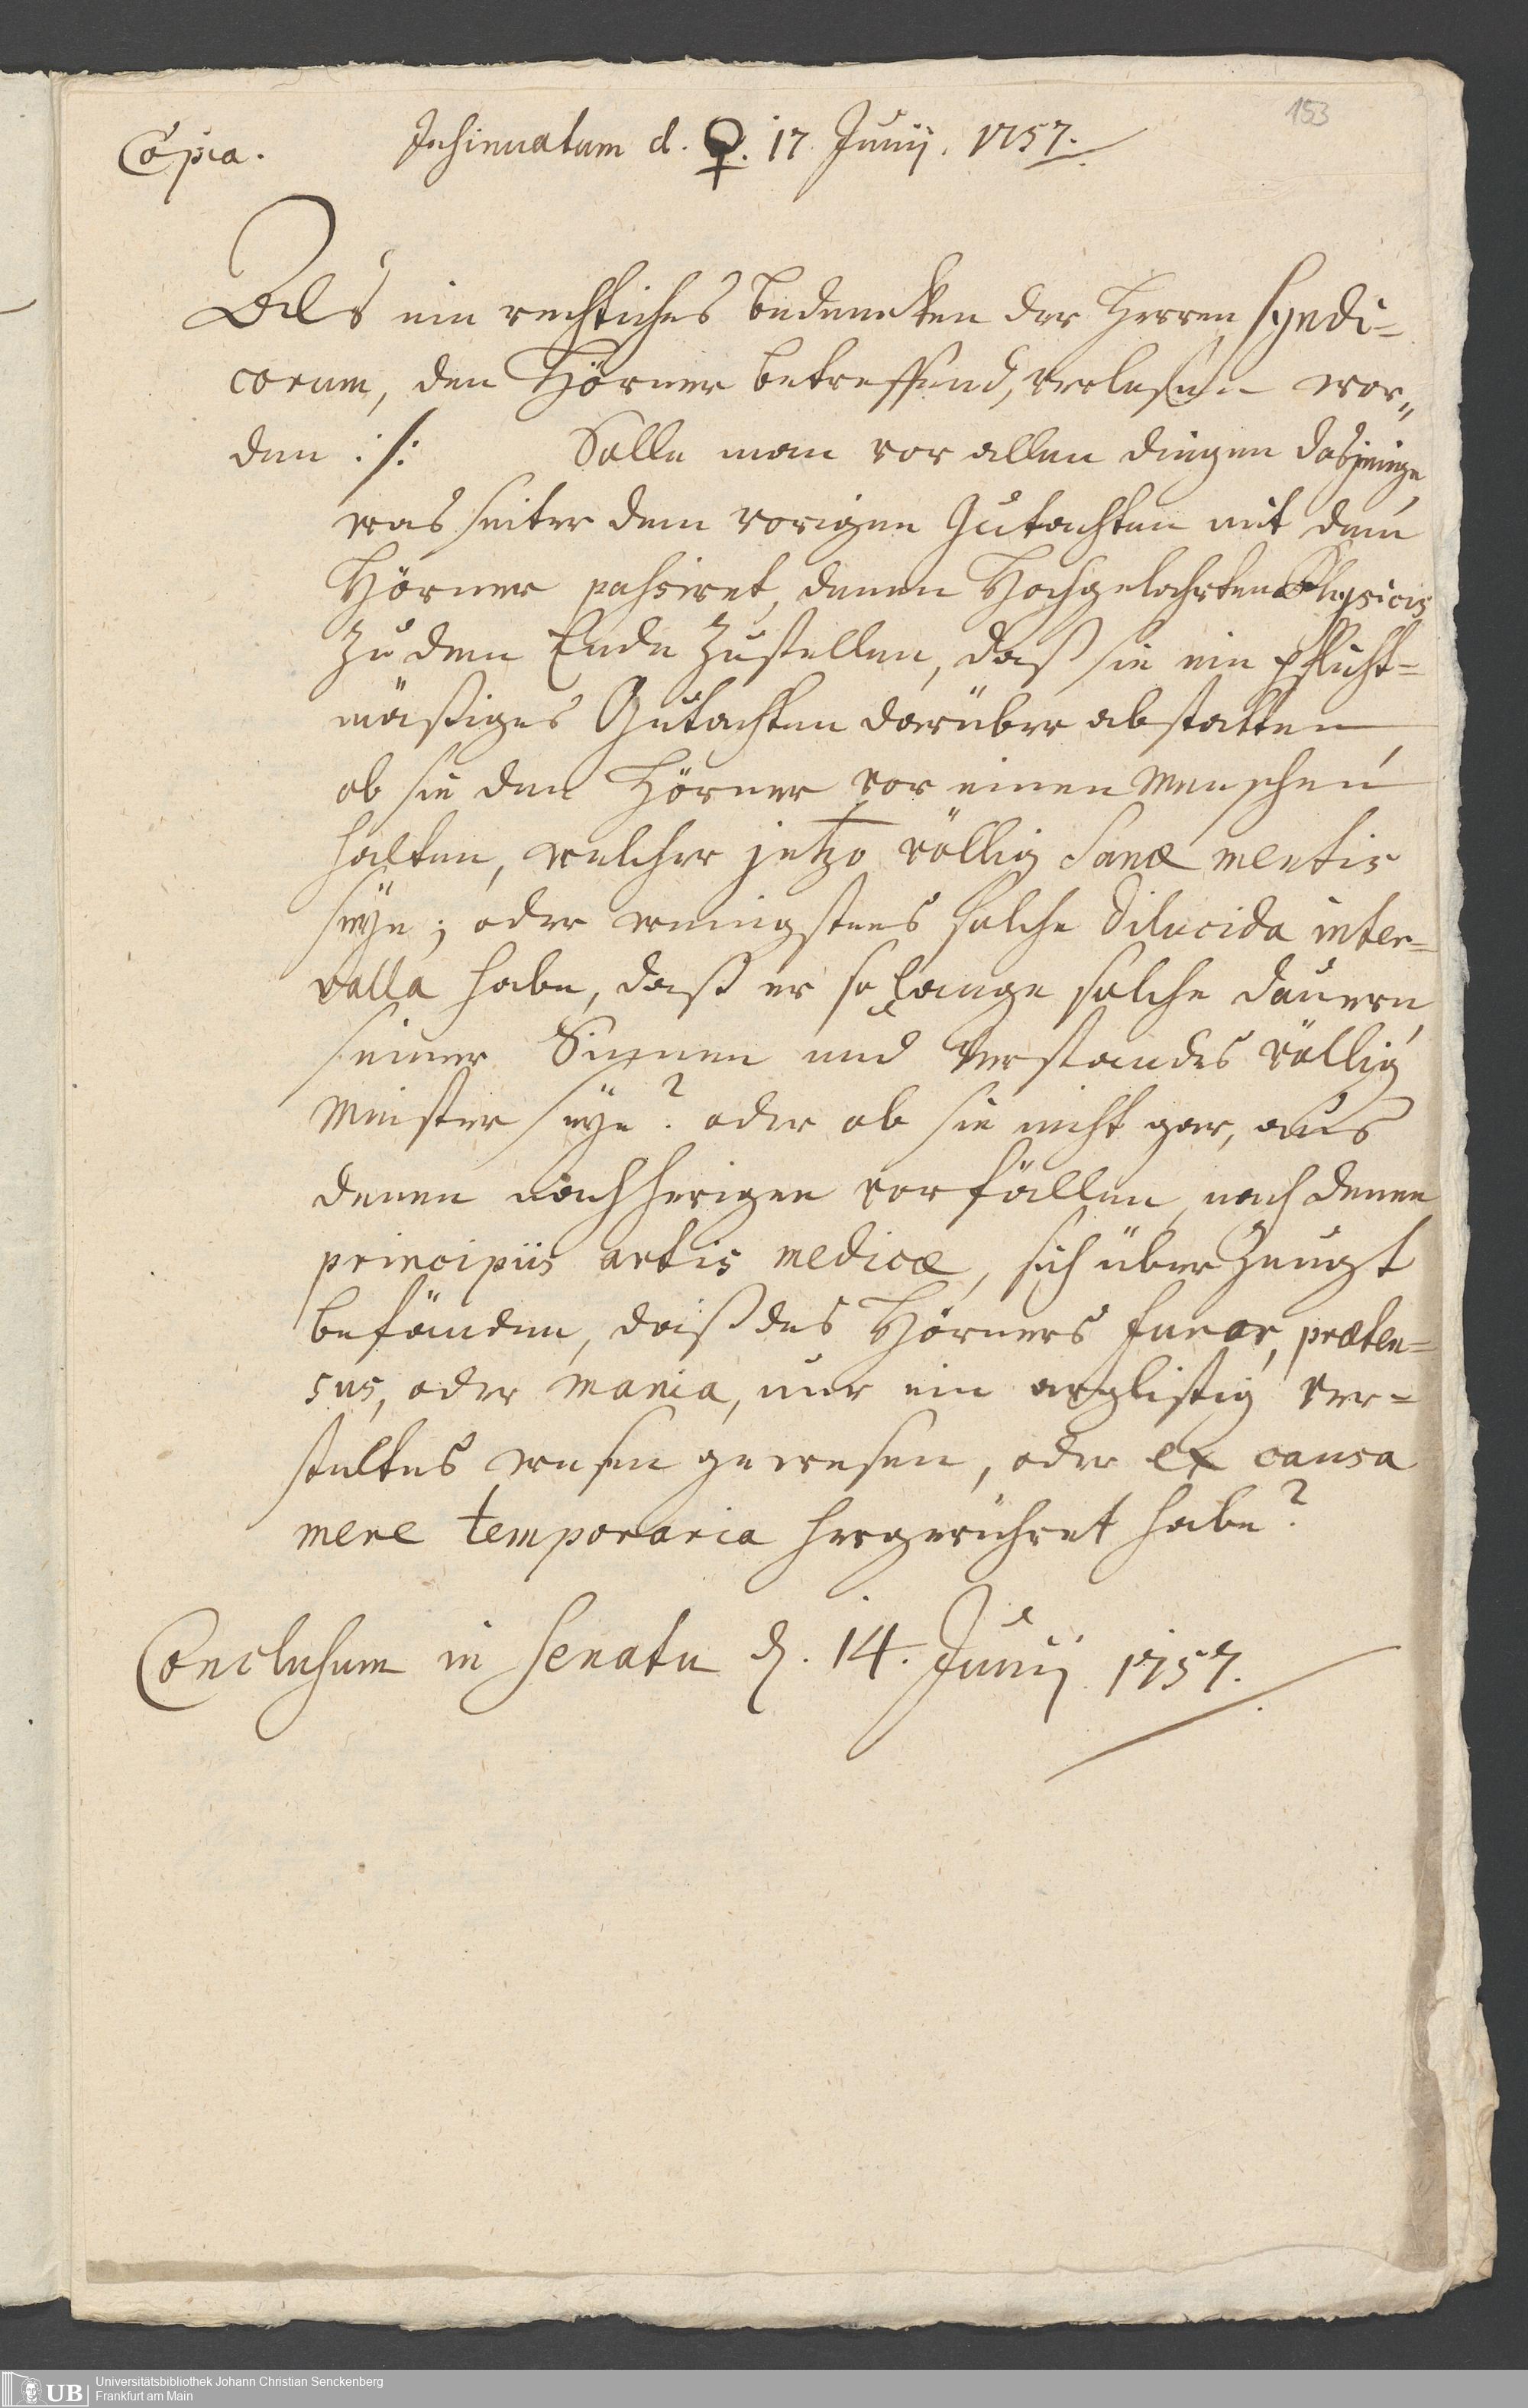 153
Copia. Insinuatum d. ♀. 17. Junij. 1757.
Als ein rechtliches bedencken der Herren Syndi=
corum, den Hörner betreffend, verlesen wor„
den :/: Solle man vor allen dingen dasjenige,
was seiter dem vorigen Gutachten mit dem
Hörner passiret, denen Hochgelahrten Physicis
zu dem Ende zustellen, daß sie ein pflicht=
mäßiges Gutachten darüber abstatten,
ob sie den Hörner vor einen Menschen
halten, welcher jetzo völlig Sanæ mentis
seÿe; oder wenigstens solche dilucida inter=
valla habe, daß er so lange solche dauern,
seiner Sinnen und Verstandes völlig
Meister seÿe? oder ob sie nicht gar, aus
denen nachherigen vorfällen, nach denen
principiis artis medicæ, sich überzeugt
befänden, daß des Hörners furor, præten=
sus, oder mania, nur ein arglistig ver=
steltes wesen gewesen, oder ex causa
mere temporaria hergerühret habe?
Conclusum in Senatu d. 14. Junij 1757.
UB Universitätsbibliothek Johann Christian Senckenberg
Frankfurt am Main